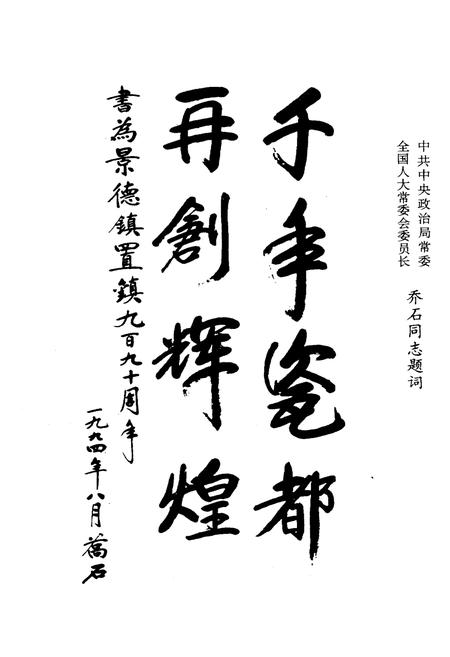 中共中央政治局常委
全国人大常委会委员长
乔石同志题词
千年瓷都
再創辉煌
書為景德鎮置鎮九百九十周年
一九九四年八月 喬石